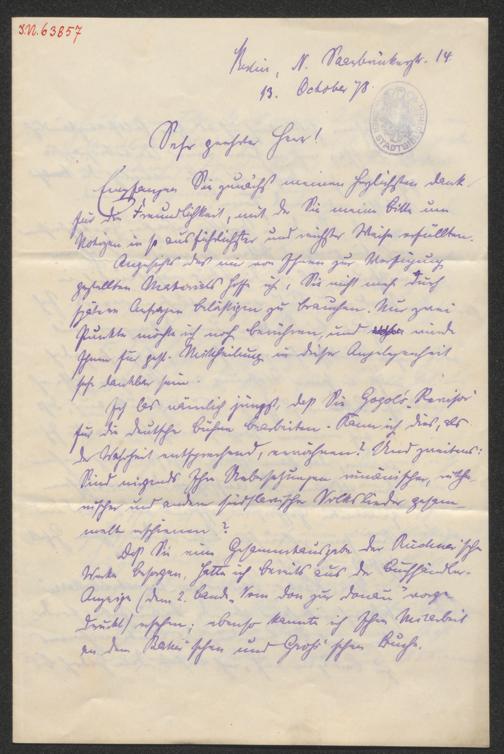 I.N. 63857
Berlin, N. Saarbrückerstr. 14
13. October 78.
STADT
Sehr geehrter Herr!
Empfangen Sie zunächst meinen herzlichsten Dank
für die Freundlichkeit, mit der Sie meine Bitte um
Notizen in so ausführlichster und reichster Weise erfüllten.
Angesichts des mir von Ihnen zur Verfügung
gestellten Materials hoffe ich, Sie nicht mehr durch
spätere Anfragen belästigen zu brauchen. Nur zwei
Punkte möchte ich noch berühren, und würde
Ihnen für gefl. Mittheilung in dieser Angelegenheit
sehr dankbar sein.
Ich las nämlich jüngst, daß Sie Gogol's „Revisor“
für die deutsche Bühne bearbeiten. Kann ich dies, als
der Wahrheit entsprechend, erwähnen? Und zweitens:
Sind nirgends Ihre Uebersetzungen rumänischer, ruthe-
nischer und anderer südslavischer Volkslieder gesam-
melt erschienen?
Daß Sie eine Gesammtausgabe der Büchner'schen
Werke besorgen, hatte ich bereits aus der Buchhändler-
Anzeige (dem 2. Bande „Vom Don zur Donau“ vorge-
druckt) ersehen; ebenso kannte ich Ihre Mitarbeit
an dem und Groß'schen Buche.